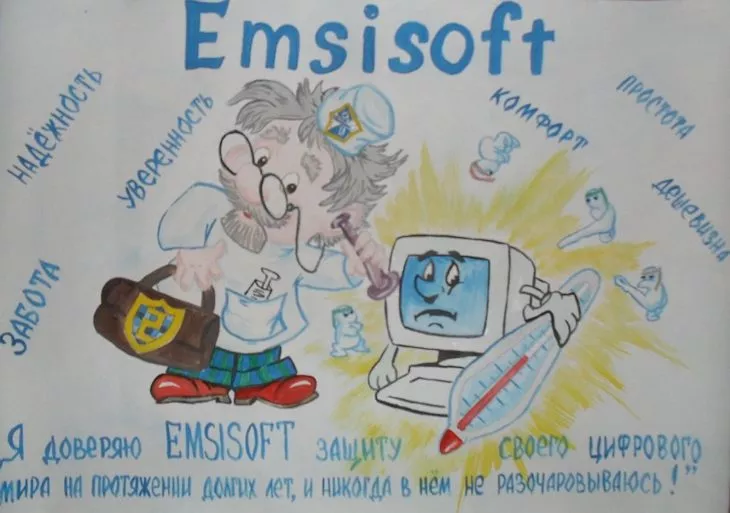 Emsisoft
НАДЁЖНОСТЬ
УВЕРЕННОСТЬ
КОМФОРТ
ПРОСТОТА
ДЕШЕВИЗНА
ЗАБОТА
"Я ДОВЕРЯЮ EMSISOFT ЗАЩИТУ СВОЕГО ЦИФРОВОГО
МИРА НА ПРОТЯЖЕНИИ ДОЛГИХ ЛЕТ, И НИКОГДА В НЁМ НЕ РАЗОЧАРОВЫВАЮСЬ!"